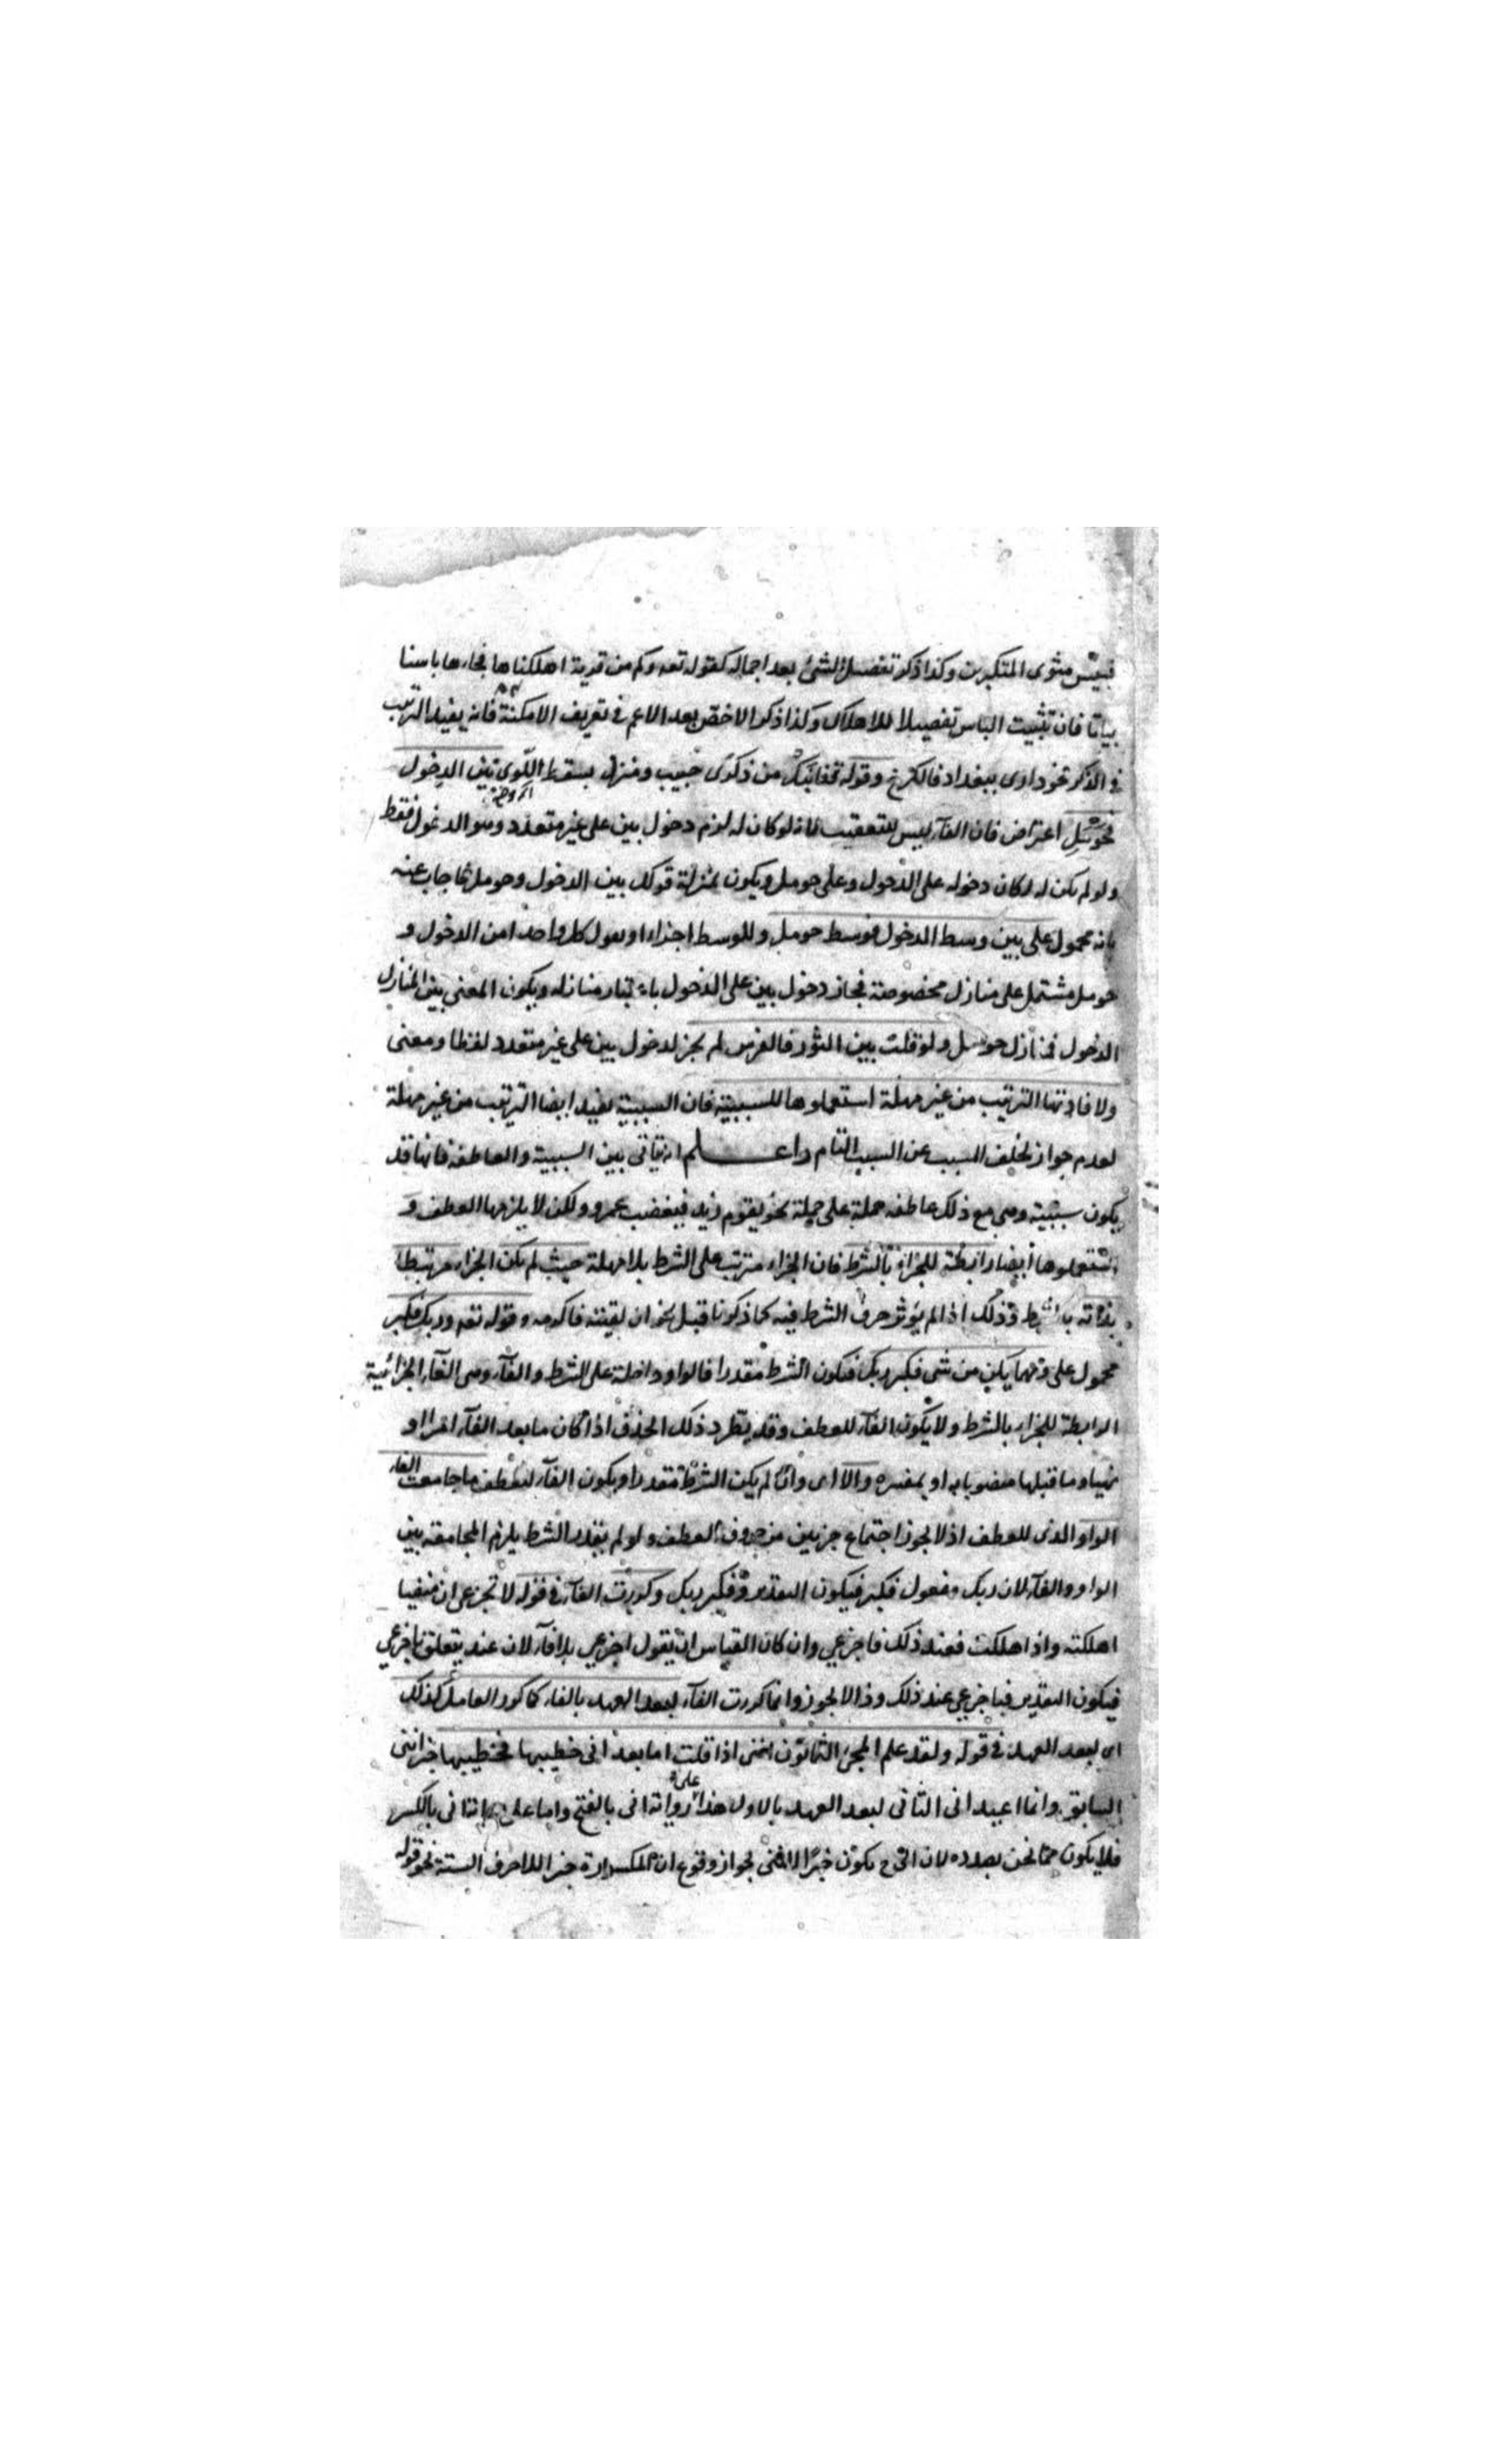 فبئس مثوى المتكبرين وكذا ذكر تفصيل الشئ بعد اجماله كقوله تعه وكم من قرية اهلكناها فجاءها باسنا
بياتا فان تثبيت الباس تفصيلا للاهلاك وكذا ذكر الاخص بعد الاعم في تعريف الامكنة فانه يفيد الترتيب
في الذكر نحو دارى ببغداد فالكرخ وقوله قفا نبك من ذكرى حبيب ومنزل بسقط اللوى بين الدخول
فحومل اعتراض فان الفآء ليس للتعقيب لانه لو كان له لزم دخول بين على غير متعدد وهو الدخول فقط
ولو لم يكن له لكان دخوله على الدخول وعلى حومل ويكون بمنزلة قولك بين الدخول وحومل فاجاب عنه
بانه محمول على بين وسط الدخول فوسط حومل وللوسط اجزاء او نقول كل واحد من الدخول و
حومل مشتمل على منازل مخصوصة فجاز دخول بين على الدخول باعتبار منازله ويكون المعنى بين المنازل
الدخول فمنازل حومل ولو قلت بين الثور فالفرس لم يجز لدخول بين على غير متعدد لفظا ومعنى
ولافادتها الترتيب من غير مهلة استعملوها للسببية فان السببية تفيد ايضا الترتيب من غير مهلة
لعدم جواز تخلف المسبب عن السبب التام واعلم انه تنافى بين السببية والعاطفه فانها قد
يكون سببية وهى مع ذلك عاطفه جملة على جملة نحو يقوم زيد فيغضب عمرو ولكن لا يلزمها العطف و
استعملوها ايضا رابطة للجزاء بالشرط فان الجزاء مترتب على الشرط بلا مهلة حيث لم يكن الجزاء مرتبطا
بذاته بالشرط وذلك اذا لم يؤثر حرف الشرط فيه كما ذكرنا قبل نحو ان لقيته فاكرمه وقوله تعه وربك فكبر
محمول على ومهما يكن من شى فكبر ربك فيكون الشرط مقدرا فالواو داخلة على الشرط والفآء وهى الفآء الجزائية
الرابطة للجزاء بالشرط ولا يكون الفآء للعطف وقد يطرد ذلك الحذف اذا كان ما بعد الفآء امرا او
نهيا وما قبلها منصوبا به او بمفسره والا اى وان لم يكن الشرط مقدرا ويكون الفآء للعطف ما جامعت الفاء
الواو الذى للعطف اذ لا يجوز اجتماع حرفين من حروف العطف ولو لم يقدر الشرط يلزم المجامعة بين
الواو والفآء لان ربك مفعول فكبر فيكون التقدير وفكبر ربك وكررت الفآء في قوله لا تجزعى ان منفسا
اهلكته واذا هلكت فعند ذلك فاجزعي وان كان القياس ان يقول اجزعي بلا فآء لان عند يتعلق باجزعي
فيكون التقدير فباجزعي عند ذلك وذا لا يجوز وانما كررت الفآء لبعد العهد بالفاء كما كرر العامل كذلك
اى لبعد العهد في قوله ولقد علم الحى اليمانون اننى اذا قلت اما بعد انى خطيبها فخطيبها خبر اننى
السابق وانما اعيد انى الثانى لبعد العهد بالاول هذا على رواية انى بالفتح واما على رواية انى بالكسر
فلا يكون مما نحن بصدده لان انى ح يكون خبرا لاننى لجواز وقوع ان المكسورة خبر اللاحرف الستة نحو قوله